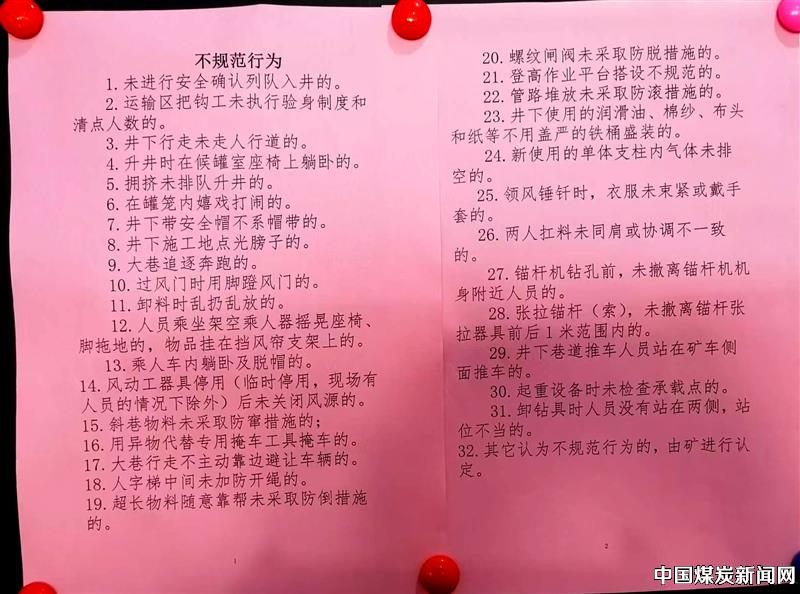 不规范行为
1. 未进行安全确认列队入井的。
2. 运输区把钩工未执行验身制度和
清点人数的。
3. 井下行走未走人行道的。
4. 升井时在候罐室座椅上躺卧的。
5. 拥挤未排队升井的。
6. 在罐笼内嬉戏打闹的。
7. 井下带安全帽不系帽带的。
8. 井下施工地点光膀子的。
9. 大巷追逐奔跑的。
10. 过风门时用脚蹬风门的。
11. 卸料时乱扔乱放的。
12. 人员乘坐架空乘人器摇晃座椅、
脚拖地的，物品挂在挡风帘支架上的。
13. 乘人车内躺卧及脱帽的。
14. 风动工器具停用（临时停用，现场有
人员的情况下除外）后未关闭风源的。
15. 斜巷物料未采取防窜措施的；
16. 用异物代替专用掩车工具掩车的。
17. 大巷行走不主动靠边避让车辆的。
18. 人字梯中间未加防开绳的。
19. 超长物料随意靠帮未采取防倒措施
的。
1
20. 螺纹闸阀未采取防脱措施的。
21. 登高作业平台搭设不规范的。
22. 管路堆放未采取防滚措施的。
23. 井下使用的润滑油、棉纱、布头
和纸等不用盖严的铁桶盛装的。
24. 新使用的单体支柱内气体未排
空的。
25. 领风锤钎时，衣服未束紧或戴手
套的。
26. 两人扛料未同肩或协调不一致
的。
27. 锚杆机钻孔前，未撤离锚杆机机
身附近人员的。
28. 张拉锚杆（索），未撤离锚杆张
拉器具前后1米范围内的。
29. 井下巷道推车人员站在矿车侧
面推车的。
30. 起重设备时未检查承载点的。
31. 卸钻具时人员没有站在两侧，站
位不当的。
32. 其它认为不规范行为的，由矿进行认
定。
2
中国煤炭新闻网